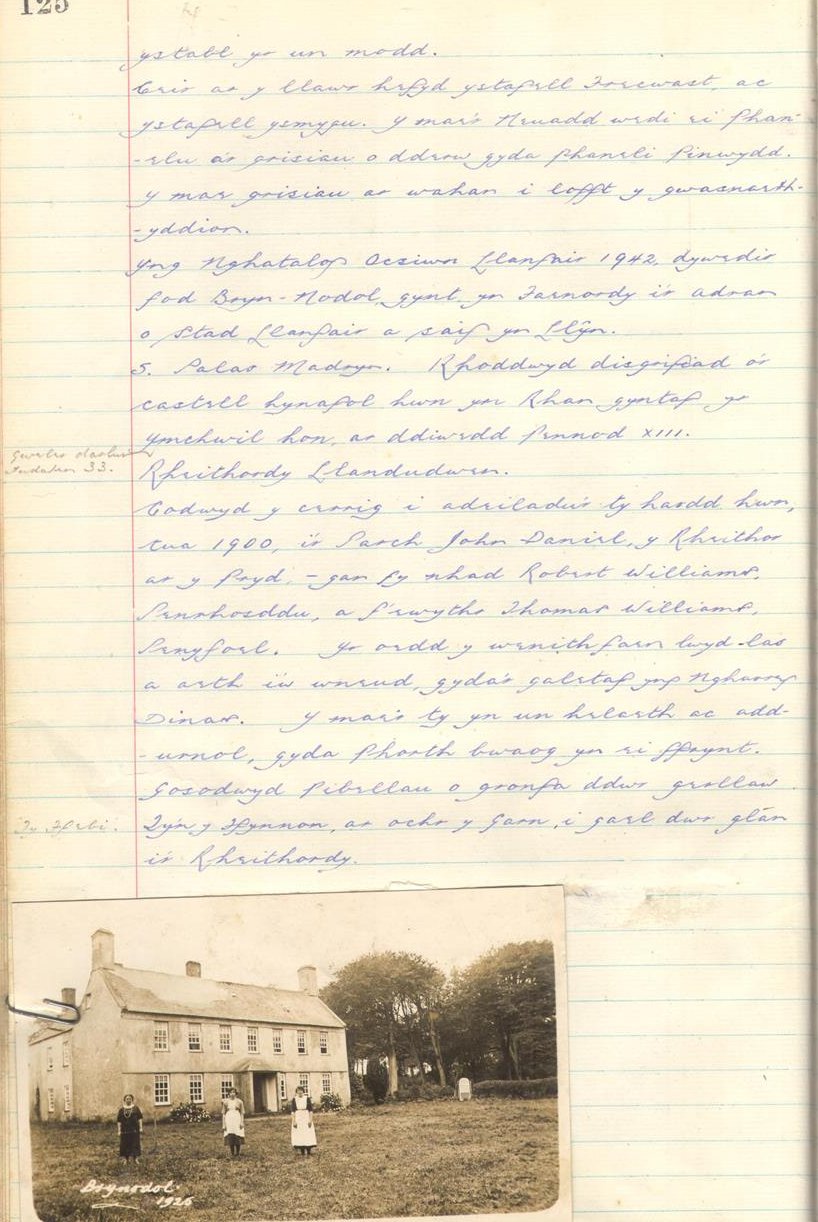 125
ystabl yr un modd.
Ceir ar y llawr hefyd ystafell Frecwast, ac
ystafell ysmygu. Y mae'r Neuadd wedi ei phan-
-elu a'r grisiau o dderw gyda phaneli pinwydd.
Y mae grisiau ar wahan i lofft y gwasnaeth-
-yddion.
Yng Nghatalog Ocsiwn Llanfair 1942, dywedir
fod Bryn-Nodol, gynt, yn Faenordy i'r adran
o Stad Llanfair a saif yn Llŷn.
5. Palas Madryn. Rhoddwyd disgrifiad o'r
castell hynafol hwn yn Rhan gyntaf yr
Ymchwil hon, ar ddiwedd Pennod XIII.
Gweler
Tudalen 33.
Rheithordy Llandudwen.
Codwyd y cerrig i adeiladu'r ty hardd hwn,
tua 1900, i'r Parch John Daniel, y Rheithor
ar y pryd, - gan fy nhad Robert Williams,
Penrhosddu, a f'ewythr Thomas Williams,
Penyfoel. Yr oedd y wenithfaen lwyd-las
a aeth i'w wneud, gyda'r galetaf yng Ngharreg
Dinas. Y mae'r ty yn un helaeth ac add-
-urnol, gyda phorth bwaog yn ei ffrynt.
Gosodwyd pibellau o gronfa ddwr gerllaw
Ty'n y Ffynnon, ar ochr y Garn, i gael dwr glân
i'r Rheithordy.
Brynodol
1925